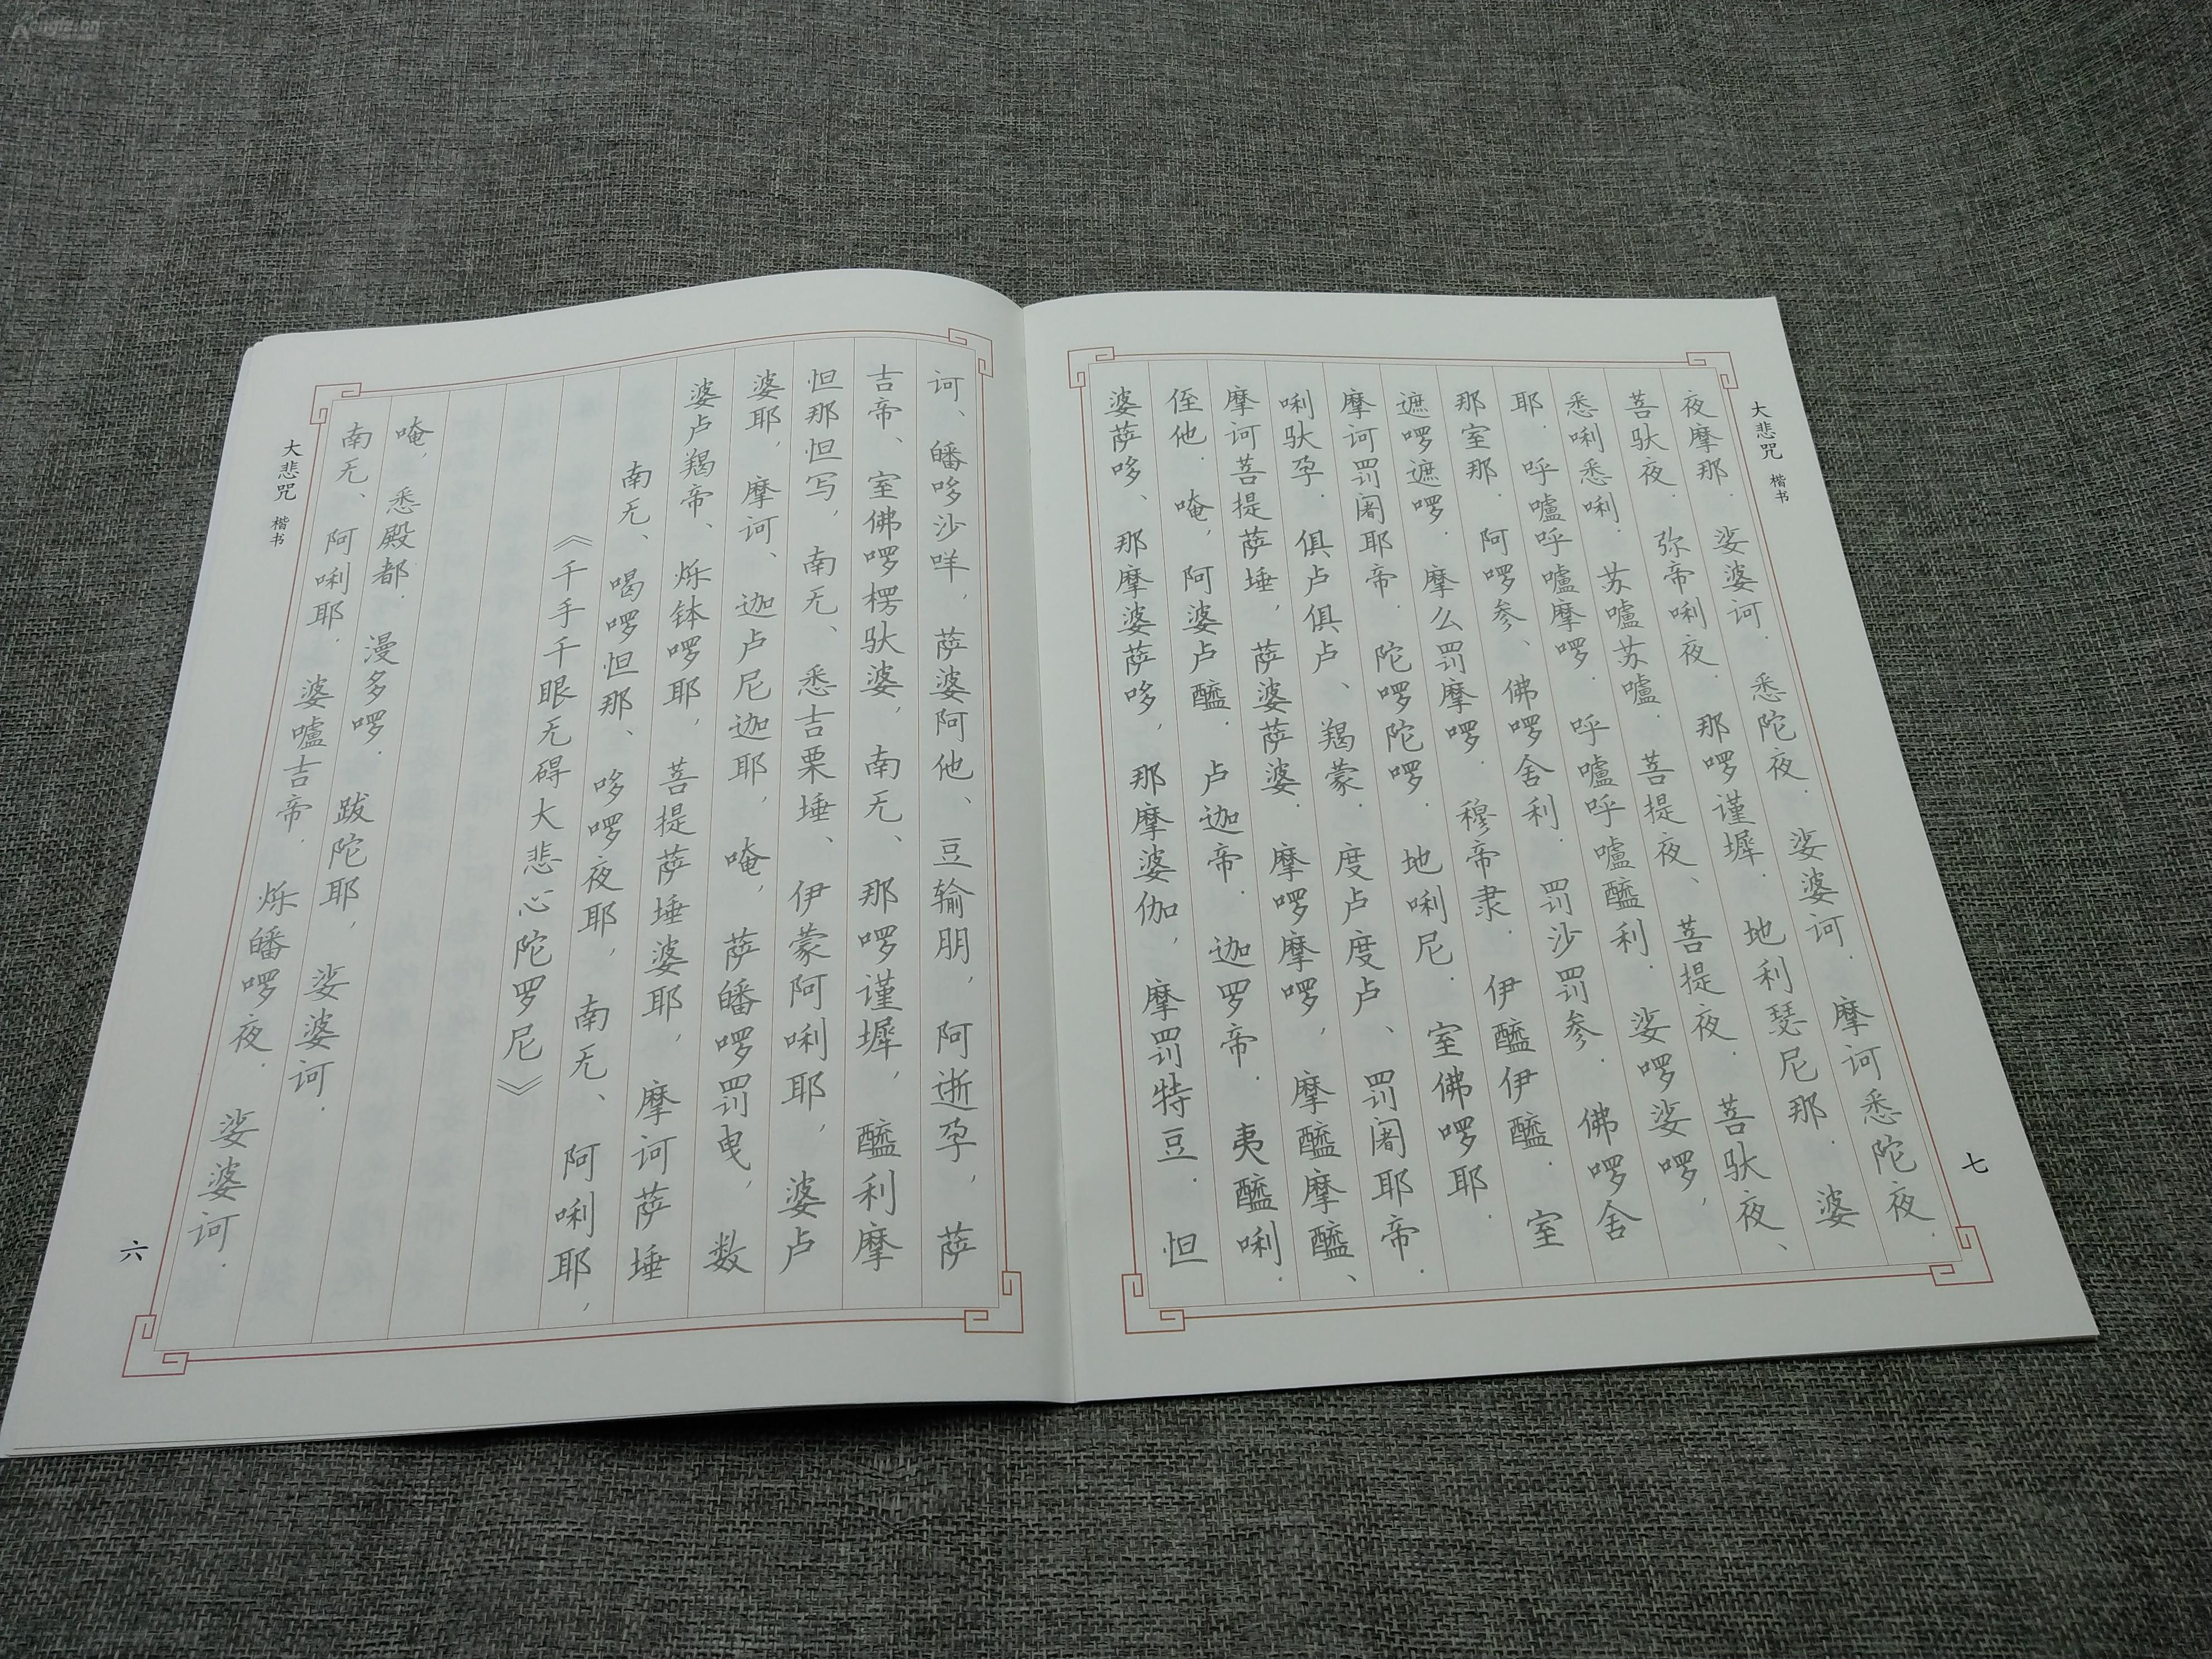 大悲咒 楷书
六
南无、阿唎耶.婆嚧吉帝.烁皤啰夜.娑婆诃.
唵,悉殿都.漫多啰.跋陀耶,娑婆诃.
《千手千眼无碍大悲心陀罗尼》
南无、喝啰怛那、哆啰夜耶,南无、阿唎耶,
婆卢羯帝、烁钵啰耶,菩提萨埵婆耶,摩诃萨埵
婆耶,摩诃、迦卢尼迦耶,唵,萨皤啰罚曳,数
怛那怛写,南无、悉吉栗埵、伊蒙阿唎耶,婆卢
吉帝、室佛啰楞驮婆,南无、那啰谨墀,醯利摩
诃、皤哆沙咩,萨婆阿他、豆输朋,阿逝孕,萨
婆萨哆、那摩婆萨哆,那摩婆伽,摩罚特豆.怛
侄他.唵,阿婆卢醯.卢迦帝.迦罗帝.夷醯唎.
摩诃菩提萨埵,萨婆萨婆.摩啰摩啰,摩醯摩醯、
唎驮孕.俱卢俱卢、羯蒙.度卢度卢、罚阇耶帝.
摩诃罚阇耶帝.陀啰陀啰.地唎尼.室佛啰耶.
遮啰遮啰.摩么罚摩啰.穆帝隶.伊醯伊醯.室
那室那.阿啰参、佛啰舍利.罚沙罚参.佛啰舍
耶.呼嚧呼嚧摩啰.呼嚧呼嚧醯利.娑啰娑啰,
悉唎悉唎.苏嚧苏嚧.菩提夜、菩提夜.菩驮夜、
菩驮夜.弥帝唎夜.那啰谨墀.地利瑟尼那.婆
夜摩那.娑婆诃.悉陀夜.娑婆诃.摩诃悉陀夜.
大悲咒 楷书
七